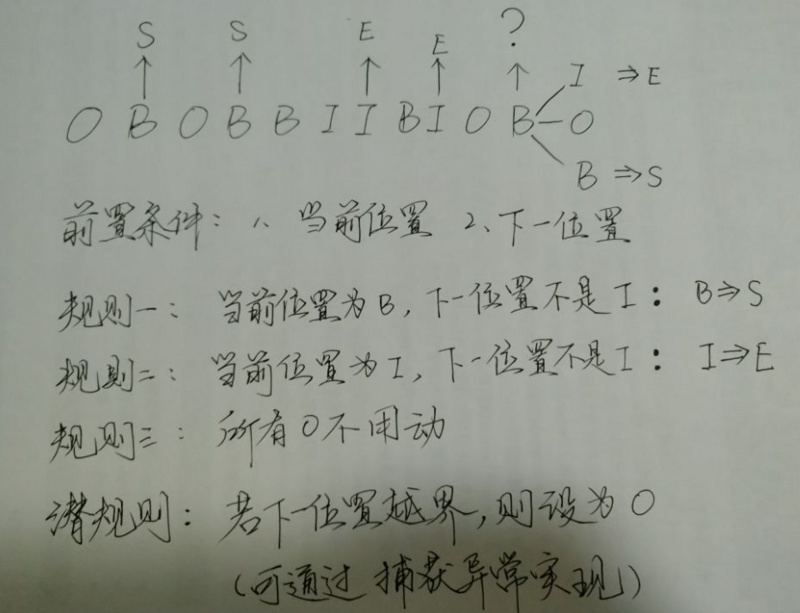 S S E E ?
↑ ↑ ↑ ↑ ↑ I ⇒ E
O B O B B I I B I O B O
B ⇒ S
前置条件: 1、当前位置 2、下一位置
规则一: 当前位置为B,下一位置不是I: B⇒S
规则二: 当前位置为I,下一位置不是I: I⇒E
规则三: 所有O不用动
潜规则: 若下一位置越界,则设为O
(可通过 捕获异常实现)